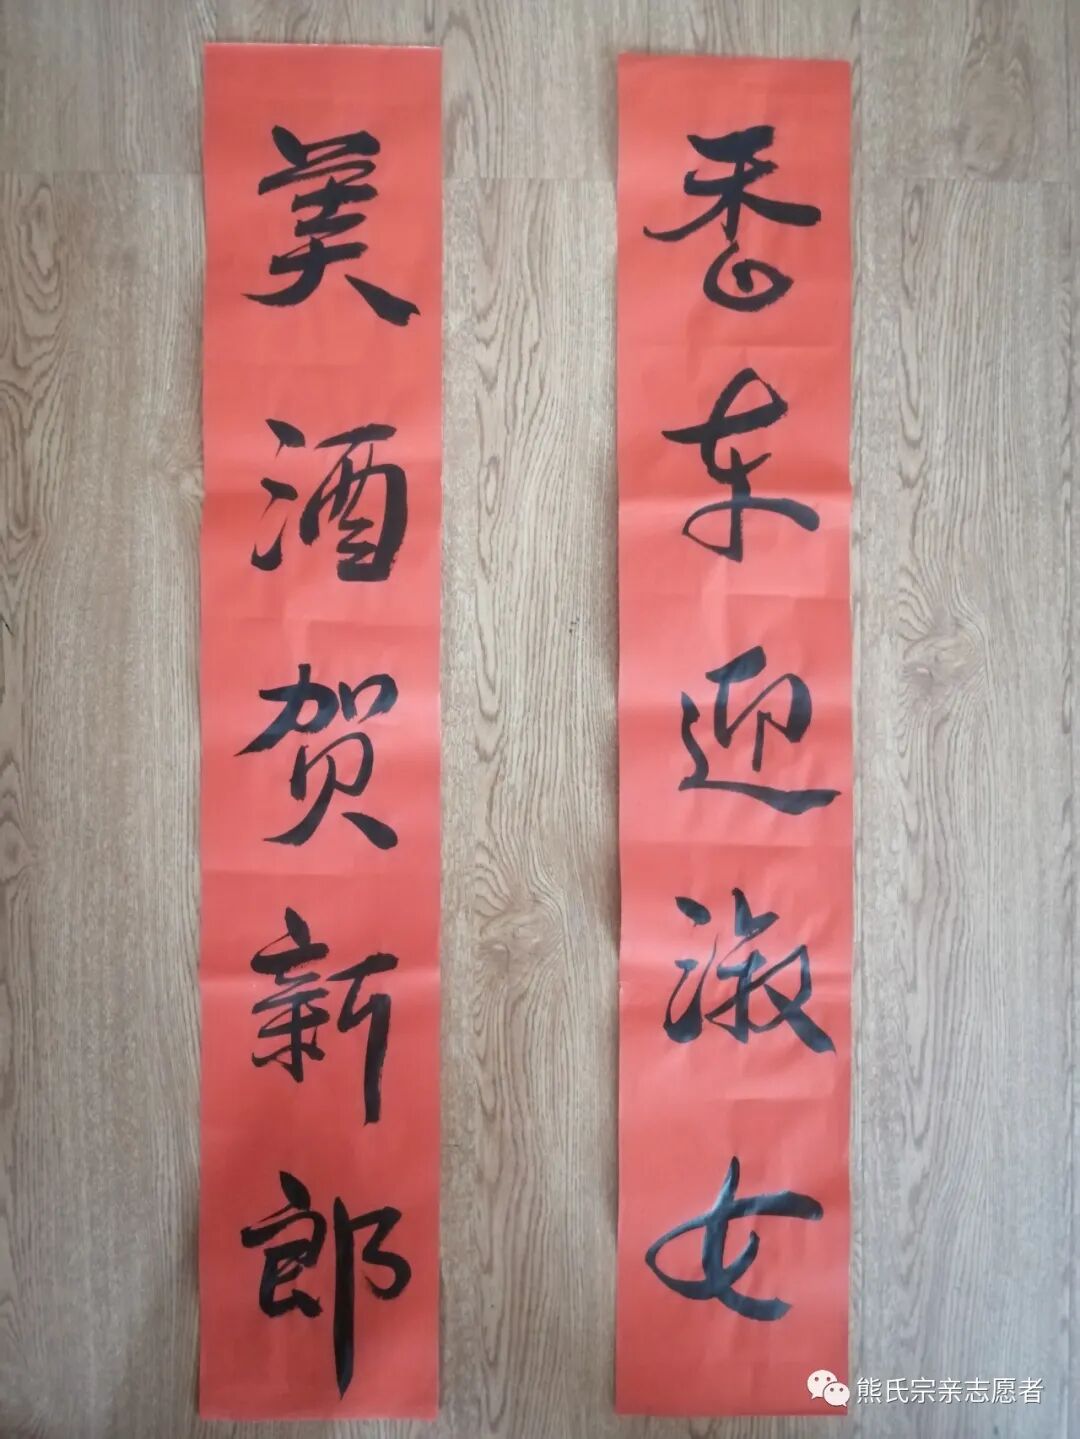 香车迎淑女
美酒贺新郎
熊氏宗亲志愿者